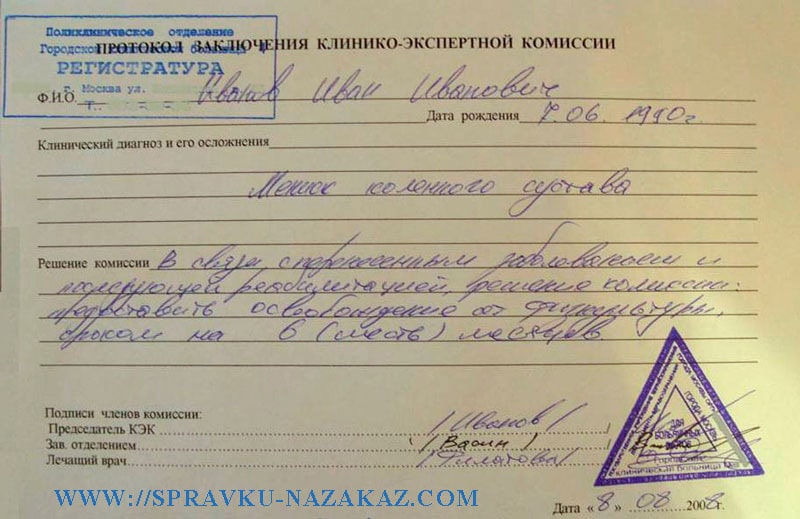 Поликлиническое отделение
Городской клинической больницы
РЕГИСТРАТУРА
г. Москва ул.
Т.
ПРОТОКОЛ ЗАКЛЮЧЕНИЯ КЛИНИКО-ЭКСПЕРТНОЙ КОМИССИИ
Ф.И.О. Иванов Иван Иванович
Дата рождения 7.06. 1990г.
Клинический диагноз и его осложнения
Мениск коленного сустава
Решение комиссии В связи с перенесенным заболеванием и
последующей реабилитацией, решение комиссии:
предоставить освобождение от физкультуры,
сроком на 6 (шесть) месяцев.
Подписи членов комиссии:
Председатель КЭК /Иванов/
Зав. отделением /Васин/
Лечащий врач /Филатова/
ДЛЯ
БОЛЬНИЧНЫХ
ЛИСТКОВ
ГОРОДА МОСКВЫ
Городская
клиническая больница
WWW.://SPRAVKU-NAZAKAZ.COM
Дата «8» 08 2008г.